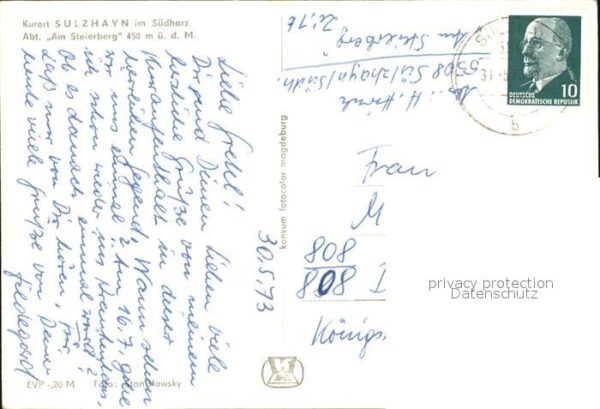 Kurort SULZHAYN im Südharz
Abt. „Am Steierberg" 450 m ü. d. M.
Liebe Gretel!
Dir und Deinen Lieben viele
herzliche Grüße von meinem
Kuraufenthalt in dieser
herrlichen Gegend. Wann sehen
wir uns einmal? Am 16.7. gehe
ich schon wieder ins Krankenhaus,
Ob es danach einmal wird?
Laß nur von Dir hören, für
heute viele Grüße von Deiner
Hedegard
30.5.73
EVP -,20 M
Foto: Stanikowsky
konsum fotocolor magdeburg
H. Hirsch
5508 Sülzhayn/Südh.
„Am Steierberg"
Zi. 16
31.5
b
10
DEUTSCHE
DEMOKRATISCHE REPUBLIK
Frau
M
808
808 I
Königs
privacy protection
Datenschutz